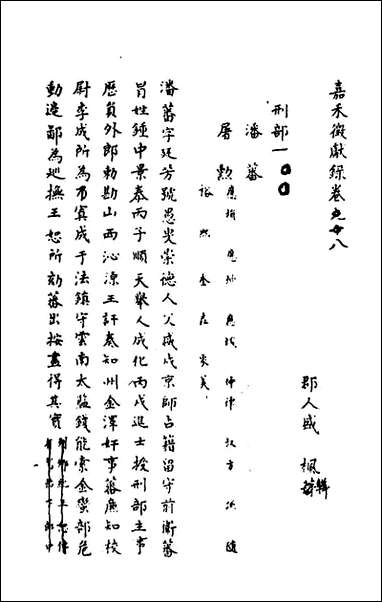 嘉禾徵獻錄卷九廿八
郡人盛　楓　輯
刑部一
潘蕃
屠勳　應埈
潘蕃字廷芳號愚叟崇德人父成戍京師占籍留守前衛蕃
冒姓鍾中景泰丙子順天舉人成化丙戌進士授刑部主事
歷員外郎勅勘山西沁源王訐奏知州金澤奸事蕃廉知校
尉李成所為乃寘成于法鎮守雲南太監錢能索金蠻部危
動邊鄙為巡撫王恕所劾蕃出按盡得其實